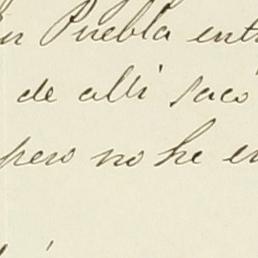 en Puebla ent
de alli sacó
pero no he en